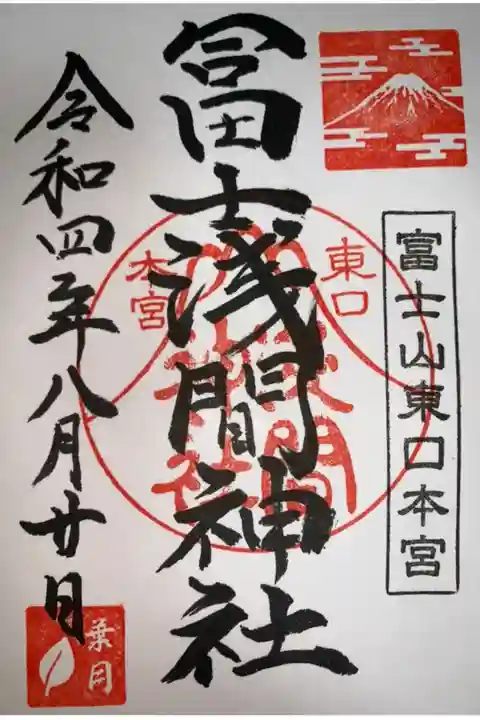 富士山東口本宮
冨士浅間神社
東口
本宮
浅間
神社
令和四年八月廿日
葉月